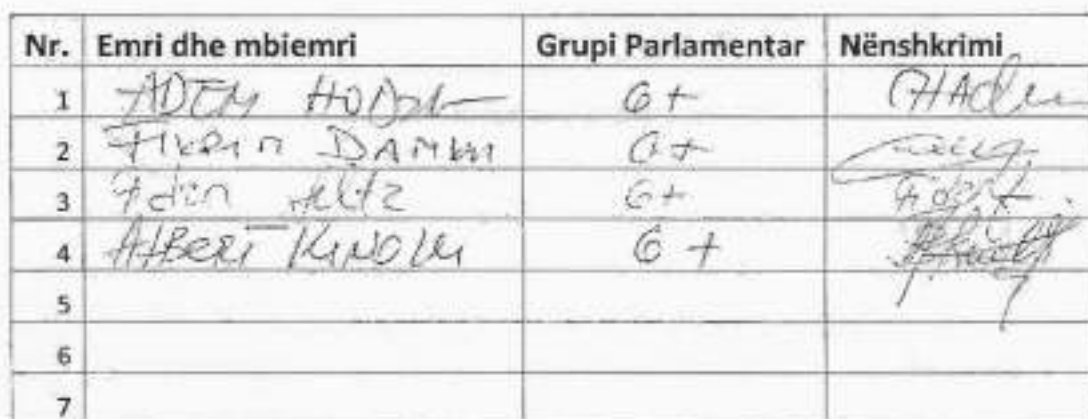 Nr. Emri dhe mbiemri Grupi Parlamentar Nënshkrimi
1 ADEM HODŽA 6+
2 FIKRIM DAMKA 6+
3 Fidan Jilta 6+
4 ALBERT KINOLLI 6+
5
6
7